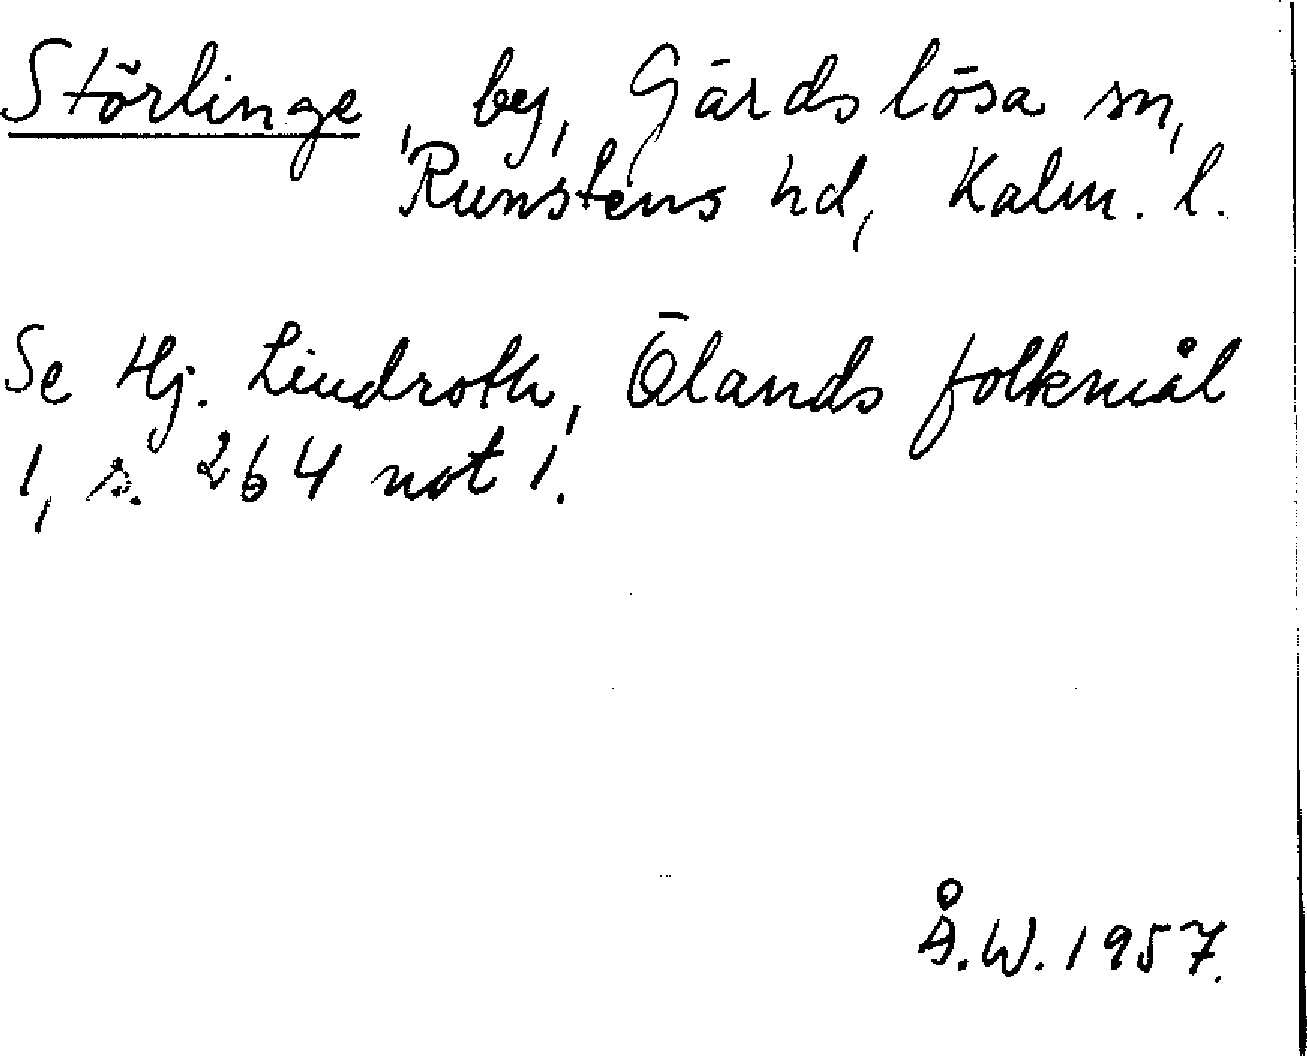 Störlinge, by, Gärdslösa sn,
Runstens hd, Kalm. l.
Se Hj. Lindroth, Ölands folkmål
1, s. 264 not 1.
Å.W. 1957.